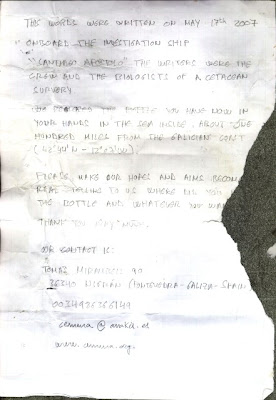 THIS WORDS WERE WRITTEN ON MAY 17th 2007
ONBOARD THE INVESTIGATION SHIP
"SANTIAGO APOSTOLO" THE WRITERS WERE THE
CREW AND THE BIOLOGISTS OF A CETACEAN
SURVEY
THE BOTTLE YOU HAVE NOW IN
YOUR HANDS IN THE SEA INSIDE, ABOUT ONE
HUNDRED MILES FROM THE GALICIAN COAST
PLEASE, MAKE OUR HOPES AND AIMS BECOME
REAL TELLING TO US WHERE DID YOU
THE BOTTLE AND WHATEVER YOU WANT
THANK YOU VERY MUCH,
OUR CONTACT IS:
NIGRÁN (PONTEVEDRA-GALIZA-SPAIN)
cemma@arrakis.es
www.cemma.org